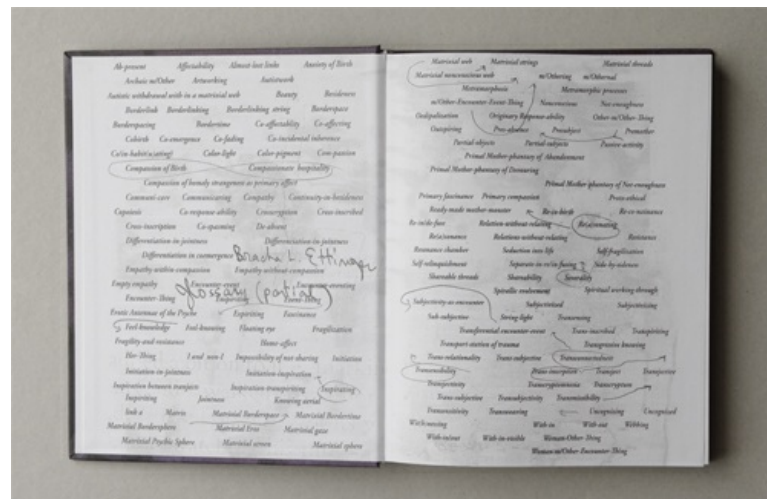 Ab-present Affectability Almost-lost links Anxiety of Birth
Archaic m/Other Artworking Autistwork
Autistic withdrawal with in a matrixial web Beauty Besideness
Borderlink Borderlinking Borderlinking string Borderspace
Borderspacing Bordertime Co-affectability Co-affecting
Cobirth Co-emergence Co-fading Co-incidental inherence
Color-light Color-pigment Com-passion
Compassion of Birth Compassionate hospitality
Compassion of homely strangeness as primary affect
Communi-care Communicaring Compathy Continuity-in-besideness
Copoiesis Co-response-ability Crosscryption Cross-inscribed
Cross-inscription Co-spasming De-absent
Differentiation in jointness Differentiation in jointness
Differentiation in coemergence Bracha L. Ettinger
Empathy within compassion Empathy without compassion
Empty empathy Encounter-event Encounter-eventing
glossary (partial)
Encounter-Thing Event-Thing
Erotic Antennae of the Psyche Espiriting Fascinance
Feel-knowledge Feel-knowing Floating eye Fragilization
Fragility and resistance Home-affect
Her-Thing I and non-I Impossibility of not sharing Initiation
Initiation-in-jointness Initiation-inspiration
Inspiration between transjects Inspiration-transpiriting Inspirating
Inspiriting Jointness Knowing aerial
link a Matrix Matrixial Borderspace Matrixial Bordertime
Matrixial Bordersphere Matrixial Eros Matrixial gaze
Matrixial Psychic Sphere Matrixial screen Matrixial sphere
Matrixial web Matrixial strings Matrixial threads
Matrixial nonconscious web m/Othering m/Othernal
Metramorphosis Metramorphic processes
m/Other-Encounter-Event-Thing Nonconscious Not-enoughness
Oedipalisation Originary Response-ability Other-m/Other-Thing
Outspiring Pres-absence Presubject Premother
Partial-objects Partial-subjects Passive-activity
Primal Mother-phantasy of Abandonment
Primal Mother-phantasy of Devouring
Primal Mother-phantasy of Not-enoughness
Primary fascinance Primary compassion Proto-ethical
Ready-made mother-monster Re-in-birth Re-co-naissance
Relation-without-relating
Relations-without-relating Resistance
Resonance chamber Seduction into life Self-fragilisation
Self-relinquishment Side-by-sideness
Shareable threads Shareability Severality
Spiralic evolvement Spiritual working-through
Subjectivity-as-encounter Subjectivized Subjectivizing
Sub-subjective String-light Transensing
Transferential encounter-event Trans-inscribed Transpiriting
Transport-station of trauma Transgressive knowing
Trans-relationality Trans-subjective Transconnectedness
Transmobility Trans-inscription Transject Transjective
Transjectivity Transcryptomnesia Transcryption
Trans-subjective Transsubjectivity Transmissibility
Transsensitivity Uncognizing Uncognized
Wit(h)nessing With-in With-out Webbing
With-in/out With-in-visible Woman-Other-Thing
Woman-m/Other-Encounter-Thing